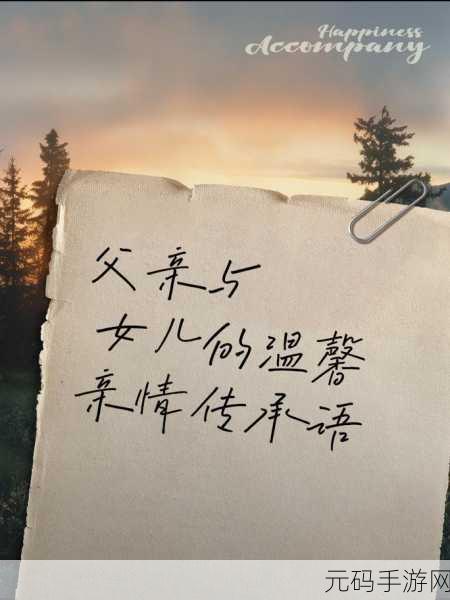 Happiness
Accompany
父亲与
女儿的温馨
亲情传承语
元码手游网